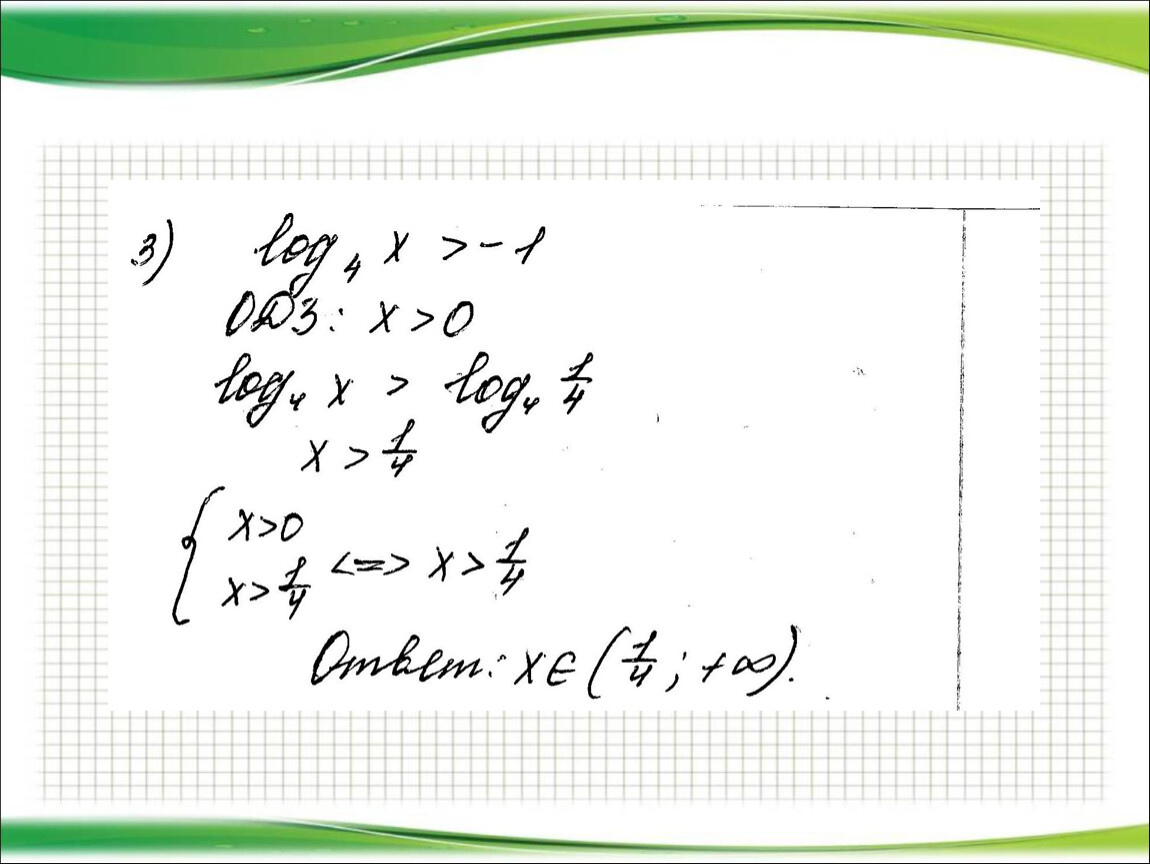 3) log₄ x > -1
ОДЗ: x > 0
log₄ x > log₄ 1/4
x > 1/4
{ x>0
x> 1/4 <=> x > 1/4
Ответ: x ∈ (1/4; +∞).